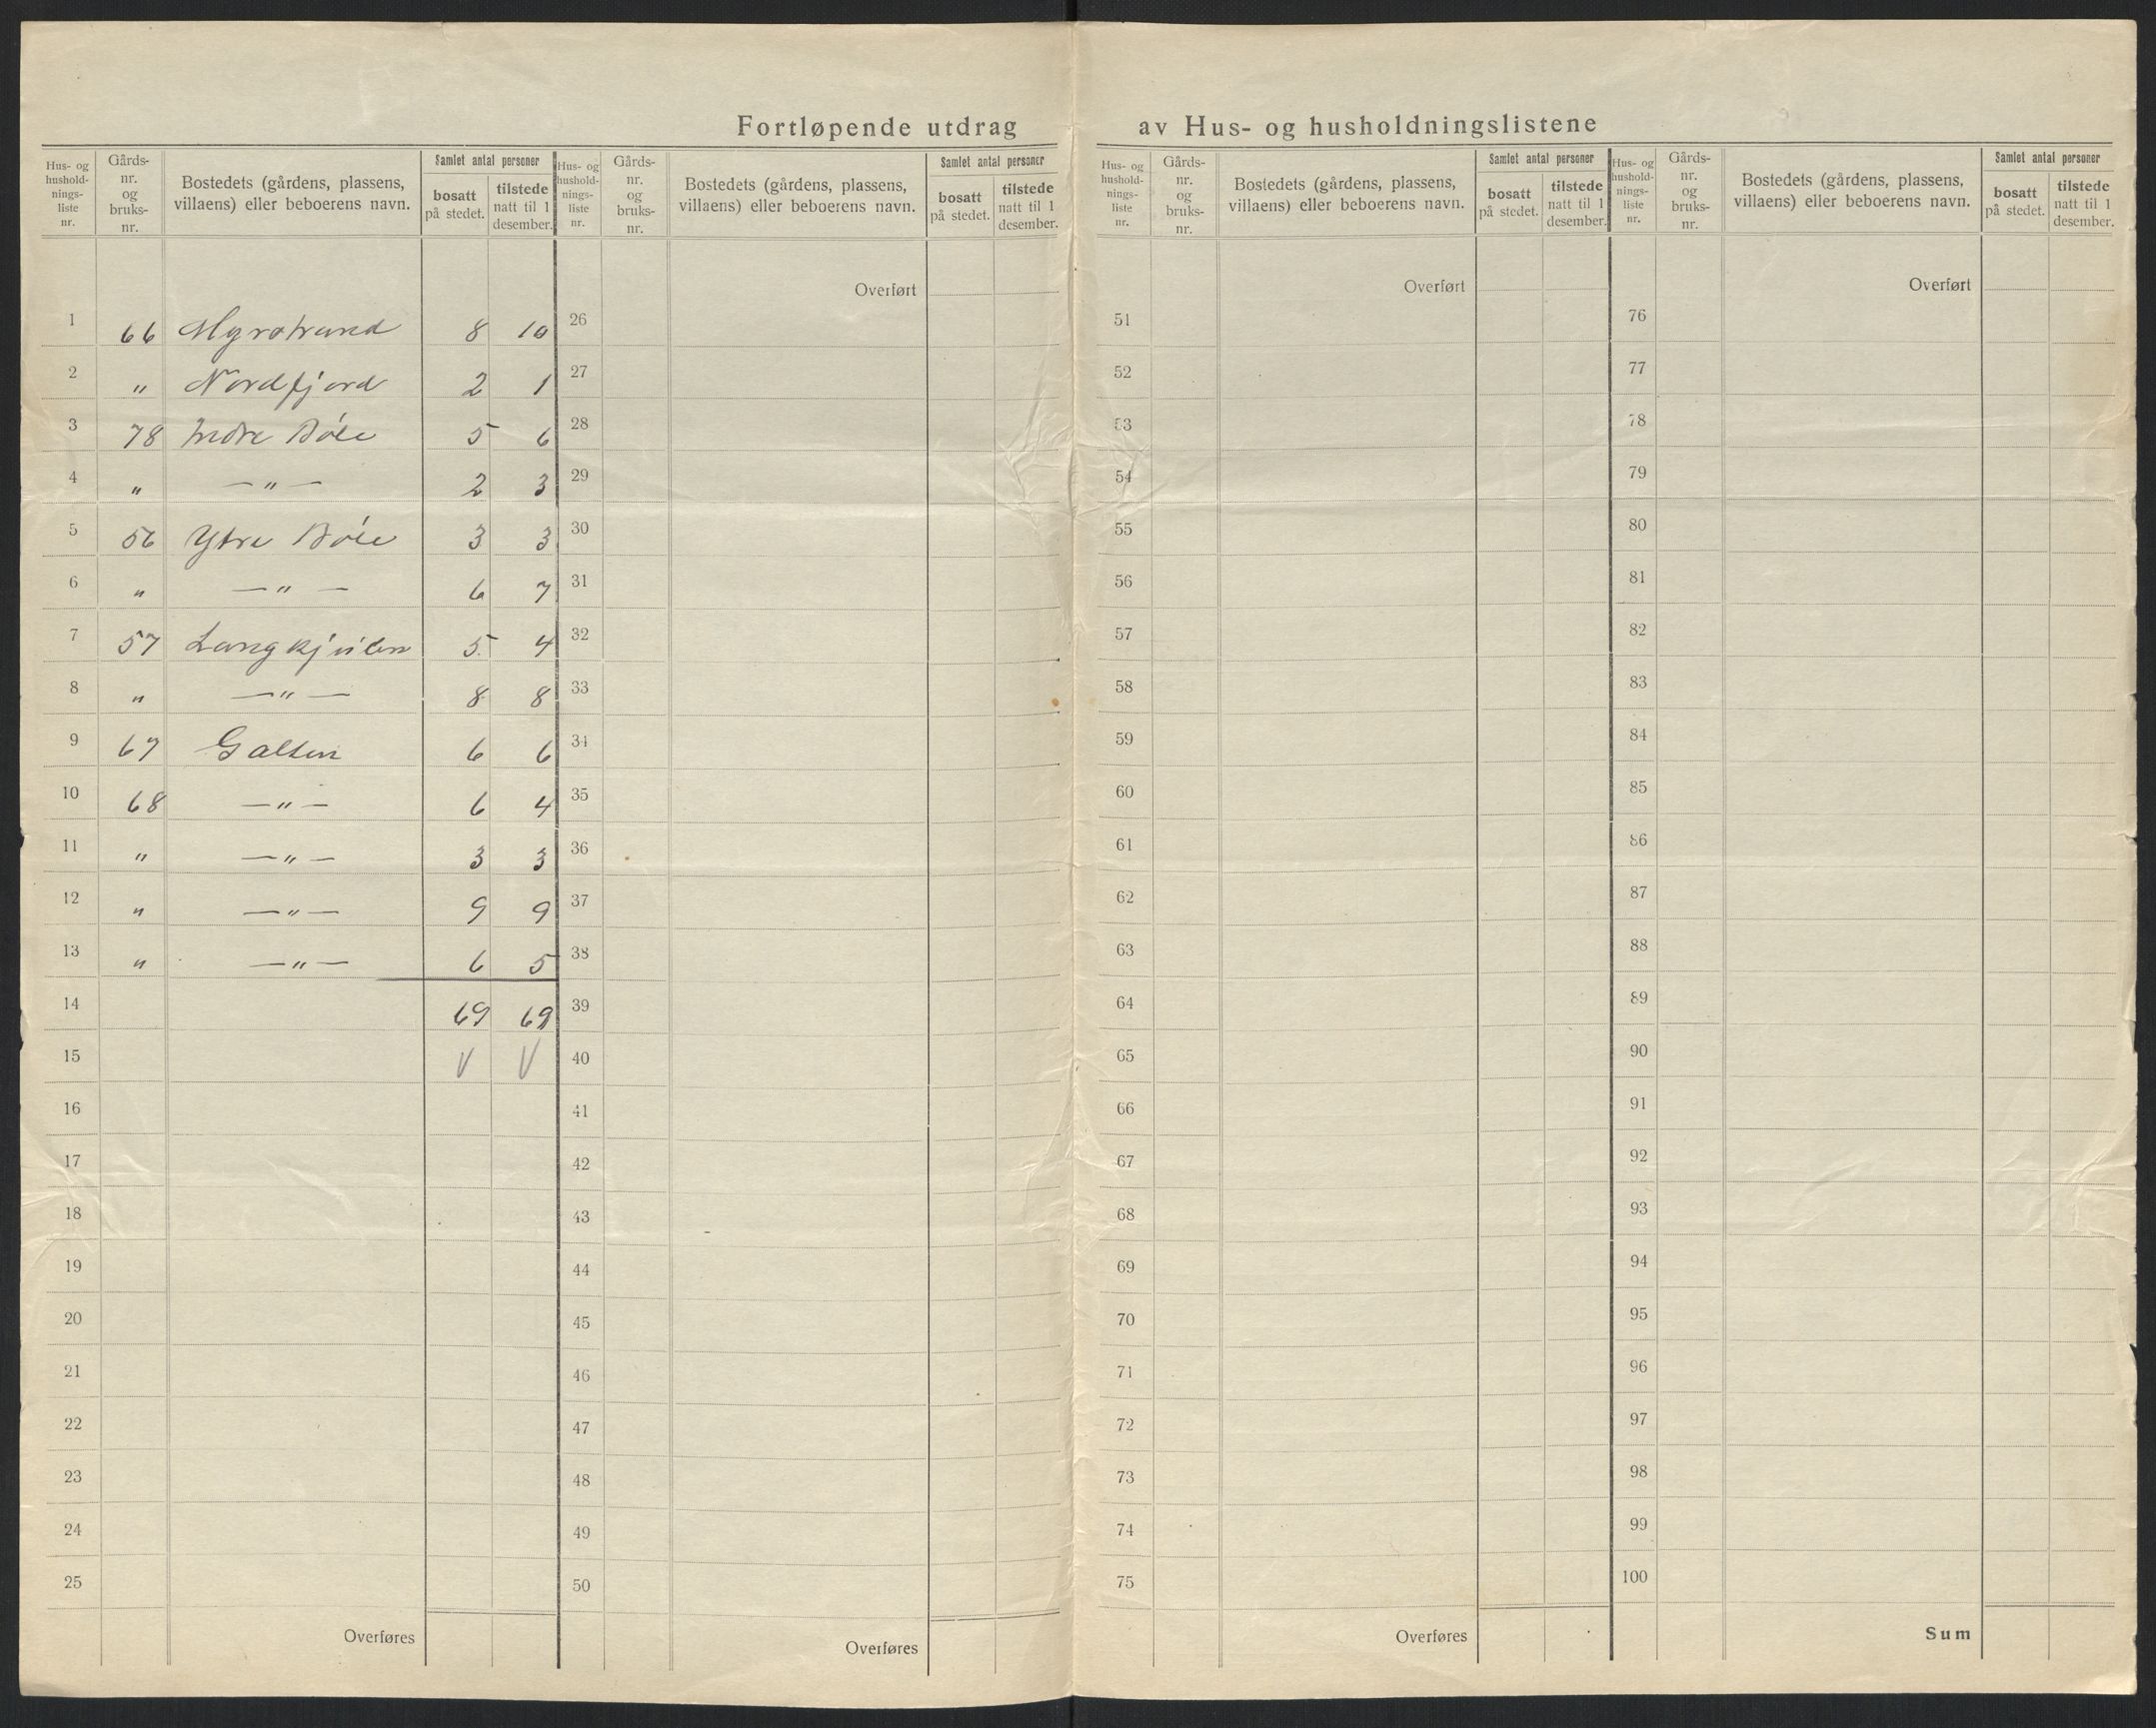 Fortløpende utdrag av Hus- og husholdningslistene
Hus- og hushold-nings-liste nr. Gårds-nr. og bruks-nr. Bostedets (gårdens, plassens, villaens) eller beboerens navn. Samlet antal personer bosatt på stedet. tilstede natt til 1 desember.
1 66 Myrstrand 8 10
2 " Nordfjord 2 1
3 78 Indre Bôle 5 6
4 " — " — 2 3
5 56 Ytre Bôle 3 3
6 " — " — 6 7
7 57 5 4
8 " — " — 8 8
9 67 Galten 6 6
10 68 — " — 6 4
11 " — " — 3 3
12 " — " — 9 9
13 " — " — 6 5
14 69 69
15 V V
16
17
18
19
20
21
22
23
24
25
Overføres
Hus- og hushold-nings-liste nr. Gårds-nr. og bruks-nr. Bostedets (gårdens, plassens, villaens) eller beboerens navn. Samlet antal personer bosatt på stedet. tilstede natt til 1 desember.
Overført
26
27
28
29
30
31
32
33
34
35
36
37
38
39
40
41
42
43
44
45
46
47
48
49
50
Overføres
Hus- og hushold-nings-liste nr. Gårds-nr. og bruks-nr. Bostedets (gårdens, plassens, villaens) eller beboerens navn. Samlet antal personer bosatt på stedet. tilstede natt til 1 desember.
Overført
51
52
53
54
55
56
57
58
59
60
61
62
63
64
65
66
67
68
69
70
71
72
73
74
75
Overføres
Hus- og hushold-nings-liste nr. Gårds-nr. og bruks-nr. Bostedets (gårdens, plassens, villaens) eller beboerens navn. Samlet antal personer bosatt på stedet. tilstede natt til 1 desember.
Overført
76
77
78
79
80
81
82
83
84
85
86
87
88
89
90
91
92
93
94
95
96
97
98
99
100
Sum